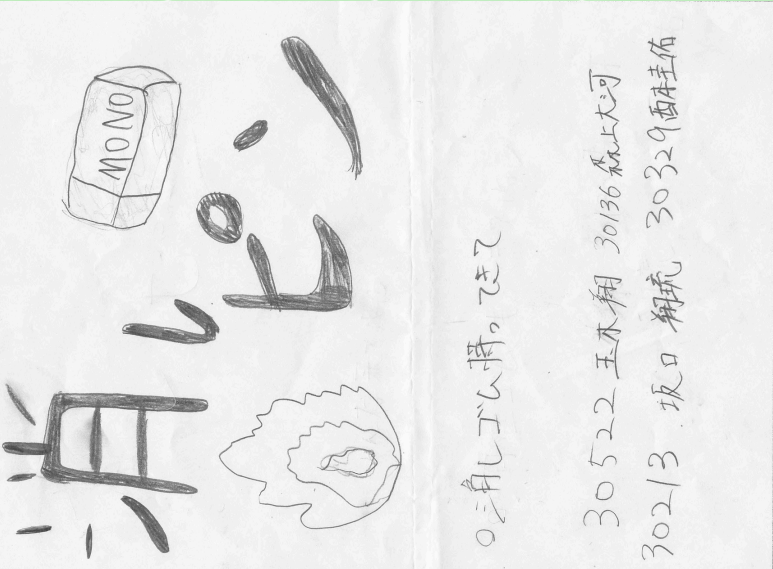 消しピン
MONO
○消しゴム持ってきて
30522 玉木翔 30136 森上大河
30213 坂口 翔琉 30329 西本圭佑